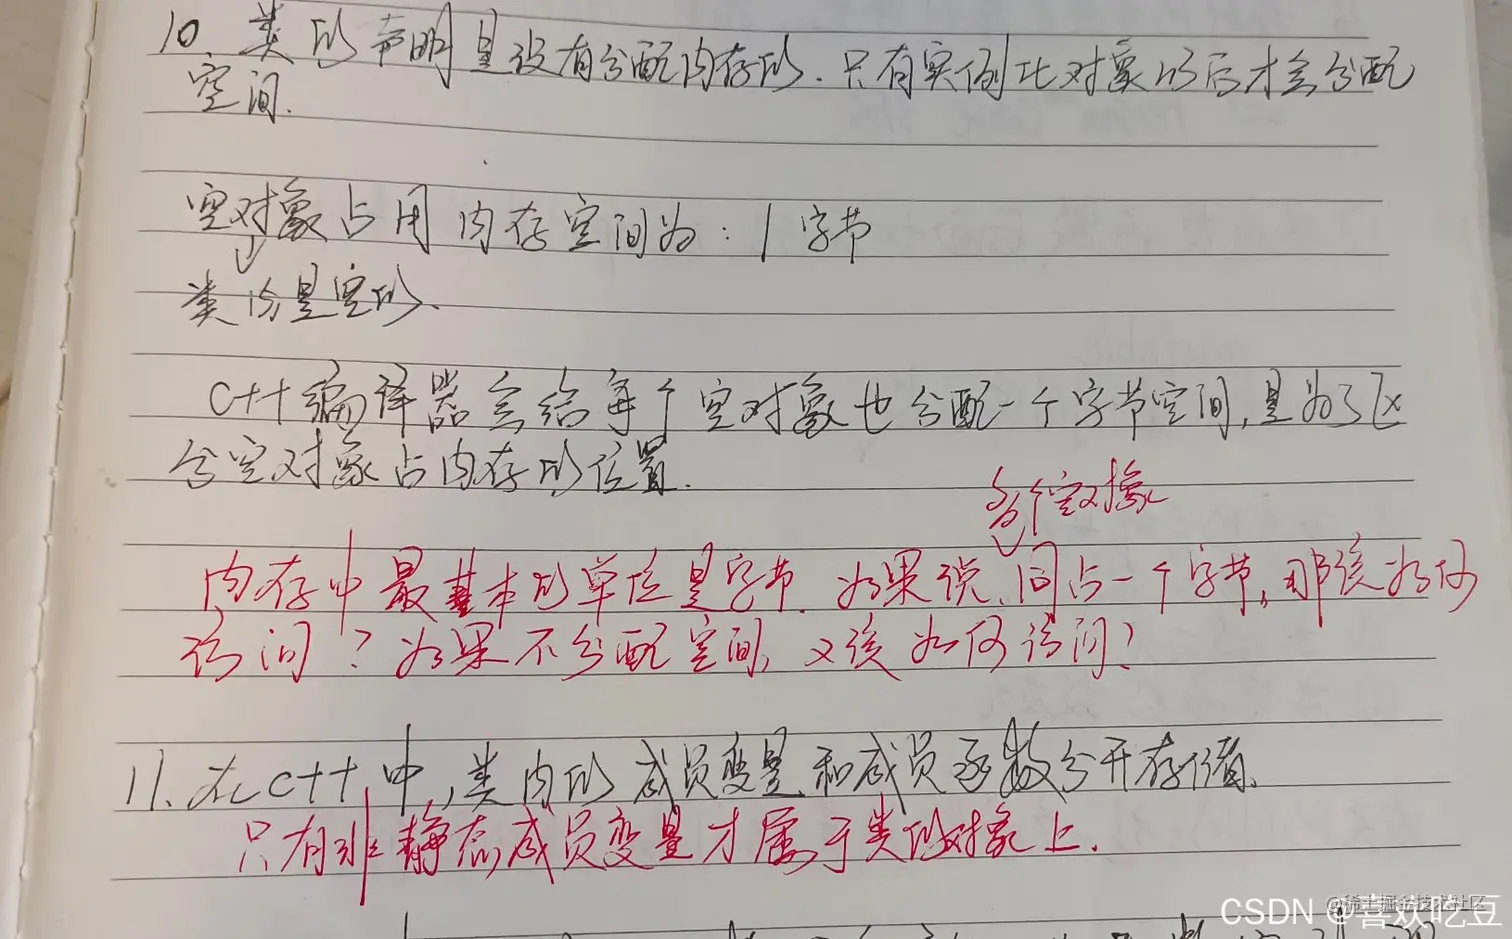 10. 类的声明是没有分配内存的. 只有实例化对象以后才会分配
空间.
空对象占用内存空间为: 1字节
类内是空的.
C++编译器会给每个空对象也分配一个字节空间, 是为了区
分空对象占内存的位置.
多个空对象
内存中最基本的单位是字节. 如果说、同占一个字节, 那该如何
访问? 如果不分配空间, 又该如何访问?
11. 在C++中, 类内的成员变量和成员函数分开存储.
只有非静态成员变量才属于类的对象上.
@稀土掘金技术社区
CSDN @喜欢吃豆